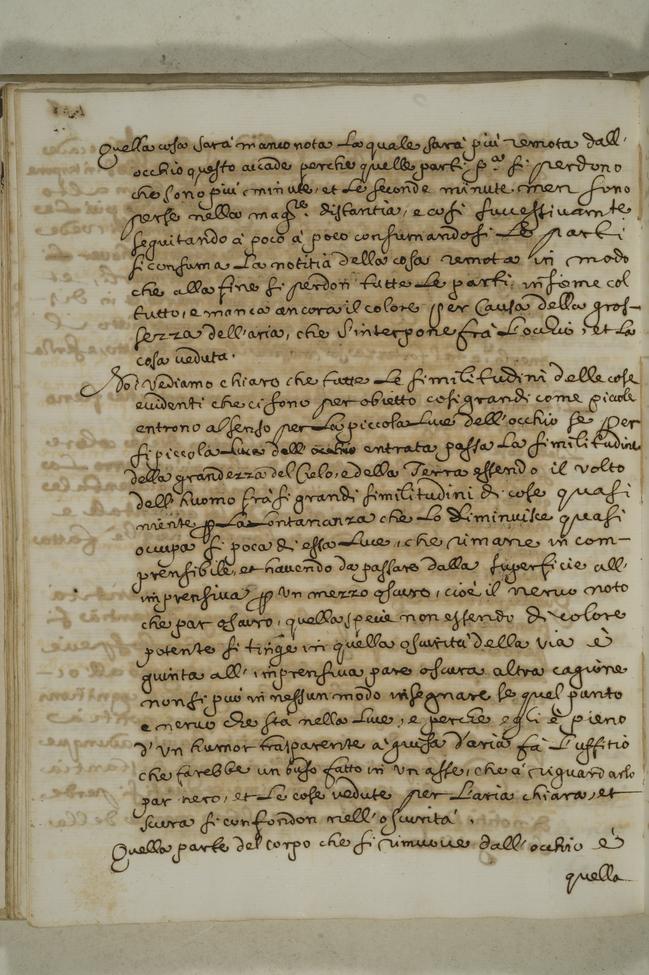 Quella cosa sarà manco nota la quale sarà più remota dall'
occhio questo accade perche quelle parti p.ª si perdono
che sono più minute, et le seconde minute men sono
perse nella mag.re distantia, e così successivam.te
seguitando à poco à poco consumandosi le parti
si consuma la notitia della cosa remota in modo
che alla fine si perdon tutte le parti insieme col
tutto, e manca ancora il colore per causa della gros-
sezza dell'aria, che s'interpone frà l'occhio, et la
cosa veduta.
Noi vediamo chiaro che tutte le similitudini delle cose
evidenti che ci sono per obietto così grandi come picole
entrono al senso per la piccola luce dell'occhio se per
si piccola luce dell'occhio entrata passa la similitudine
della grandezza del Cielo, e della Terra essendo il volto
dell'huomo frà si grandi similitudini di cose quasi
niente p la lontananza che lo diminuisce quasi
ocupa si poca di essa luce, che rimane incom-
prensibile, et havendo da passare dalla superficie all'
imprensiva p un mezzo oscuro, cioè il nervo noto
che par oscuro, quella spetie non essendo di colore
potente si tinge in quella oscurità della via è
giunta all'imprensiva pare oscura altra cagione
non si può in nessun modo insegnare se quel punto
e nervo che stà nella luce, e perche egli è pieno
d'un humor trasparente à guisa d'aria fà l'uffitio
che farebbe un buso fatto in un asse, che à riguardarlo
par nero, et le cose vedute per l'aria chiara, et
scura si confondon nell'oscurità.
Quella parte del corpo che si rimuove dall'occhio è
quella